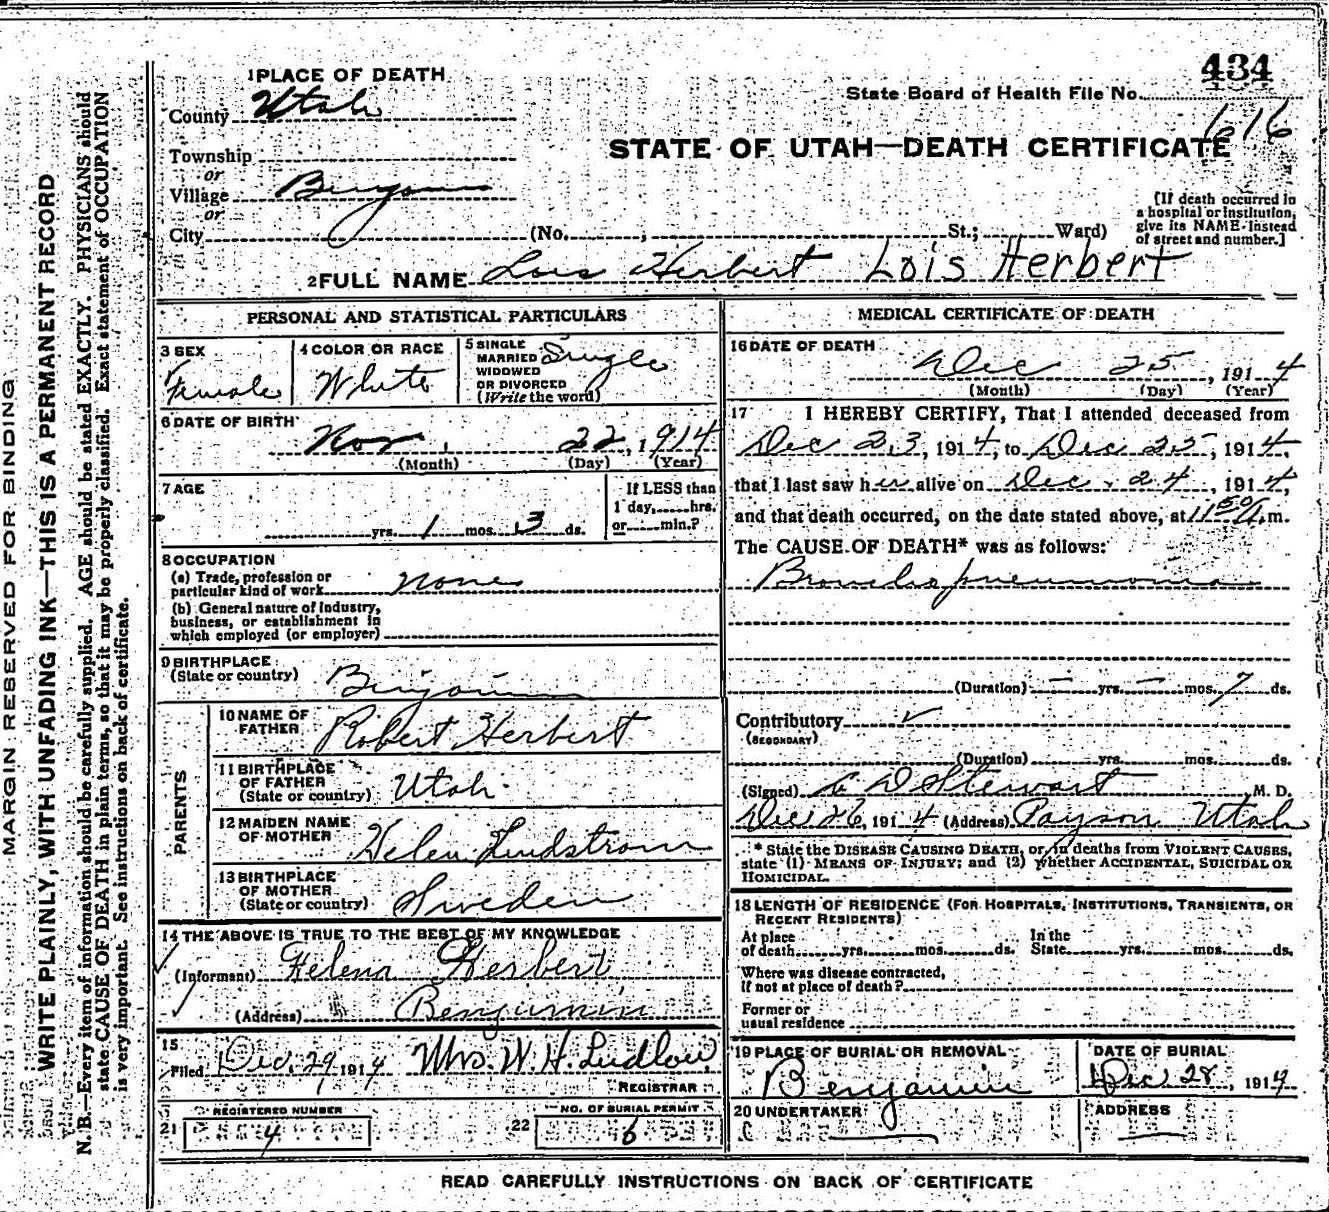 434
State Board of Health File No.
616
1 PLACE OF DEATH
County Utah
STATE OF UTAH—DEATH CERTIFICATE
Township
or
Village Benjamin
or
City (No. ; St.; Ward)
[If death occurred in a hospital or institution, give its NAME instead of street and number.]
2 FULL NAME Lois Herbert Lois Herbert
PERSONAL AND STATISTICAL PARTICULARS
3 SEX
Female
4 COLOR OR RACE
White
5 SINGLE MARRIED WIDOWED OR DIVORCED (Write the word) Single
6 DATE OF BIRTH
Nov 22, 1914
(Month) (Day) (Year)
7 AGE
yrs. 1 mos. 3 ds.
If LESS than 1 day, hrs. or min.?
8 OCCUPATION
(a) Trade, profession or particular kind of work none
(b) General nature of industry, business, or establishment in which employed (or employer)
9 BIRTHPLACE
(State or country) Benjamin
PARENTS
10 NAME OF FATHER Robert Herbert
11 BIRTHPLACE OF FATHER (State or country) Utah
12 MAIDEN NAME OF MOTHER Helen Lindstrom
13 BIRTHPLACE OF MOTHER (State or country) Sweden
14 THE ABOVE IS TRUE TO THE BEST OF MY KNOWLEDGE
(Informant) Helena Herbert
(Address) Benjamin
15
Filed Dec. 29, 1914 Mrs. W. H. Ludlow
REGISTRAR
21 REGISTERED NUMBER
4
22 NO. OF BURIAL PERMIT
6
MEDICAL CERTIFICATE OF DEATH
16 DATE OF DEATH
Dec 25, 1914
(Month) (Day) (Year)
17 I HEREBY CERTIFY, That I attended deceased from
Dec 23, 1914, to Dec 25, 1914,
that I last saw her alive on Dec. 24, 1914,
and that death occurred, on the date stated above, at 11 50 A. m.
The CAUSE OF DEATH* was as follows:
Broncho pneumonia
(Duration) — yrs. — mos. 7 ds.
Contributory
(SECONDARY)
(Duration) yrs. mos. ds.
(Signed) A D Stewart, M. D.
Dec 26, 1914 (Address) Payson Utah
* State the DISEASE CAUSING DEATH, or, in deaths from VIOLENT CAUSES,
state (1) MEANS OF INJURY; and (2) whether ACCIDENTAL, SUICIDAL OR
HOMICIDAL.
18 LENGTH OF RESIDENCE (FOR HOSPITALS, INSTITUTIONS, TRANSIENTS, OR
RECENT RESIDENTS)
At place of death yrs. mos. ds. In the State yrs. mos. ds.
Where was disease contracted,
if not at place of death?
Former or
usual residence
19 PLACE OF BURIAL OR REMOVAL
Benjamin
DATE OF BURIAL
Dec. 28, 1914
20 UNDERTAKER
ADDRESS
READ CAREFULLY INSTRUCTIONS ON BACK OF CERTIFICATE
MARGIN RESERVED FOR BINDING
WRITE PLAINLY, WITH UNFADING INK—THIS IS A PERMANENT RECORD
N. B.—Every item of information should be carefully supplied. AGE should be stated EXACTLY. PHYSICIANS should
state CAUSE OF DEATH in plain terms, so that it may be properly classified. Exact statement of OCCUPATION
is very important. See instructions on back of certificate.